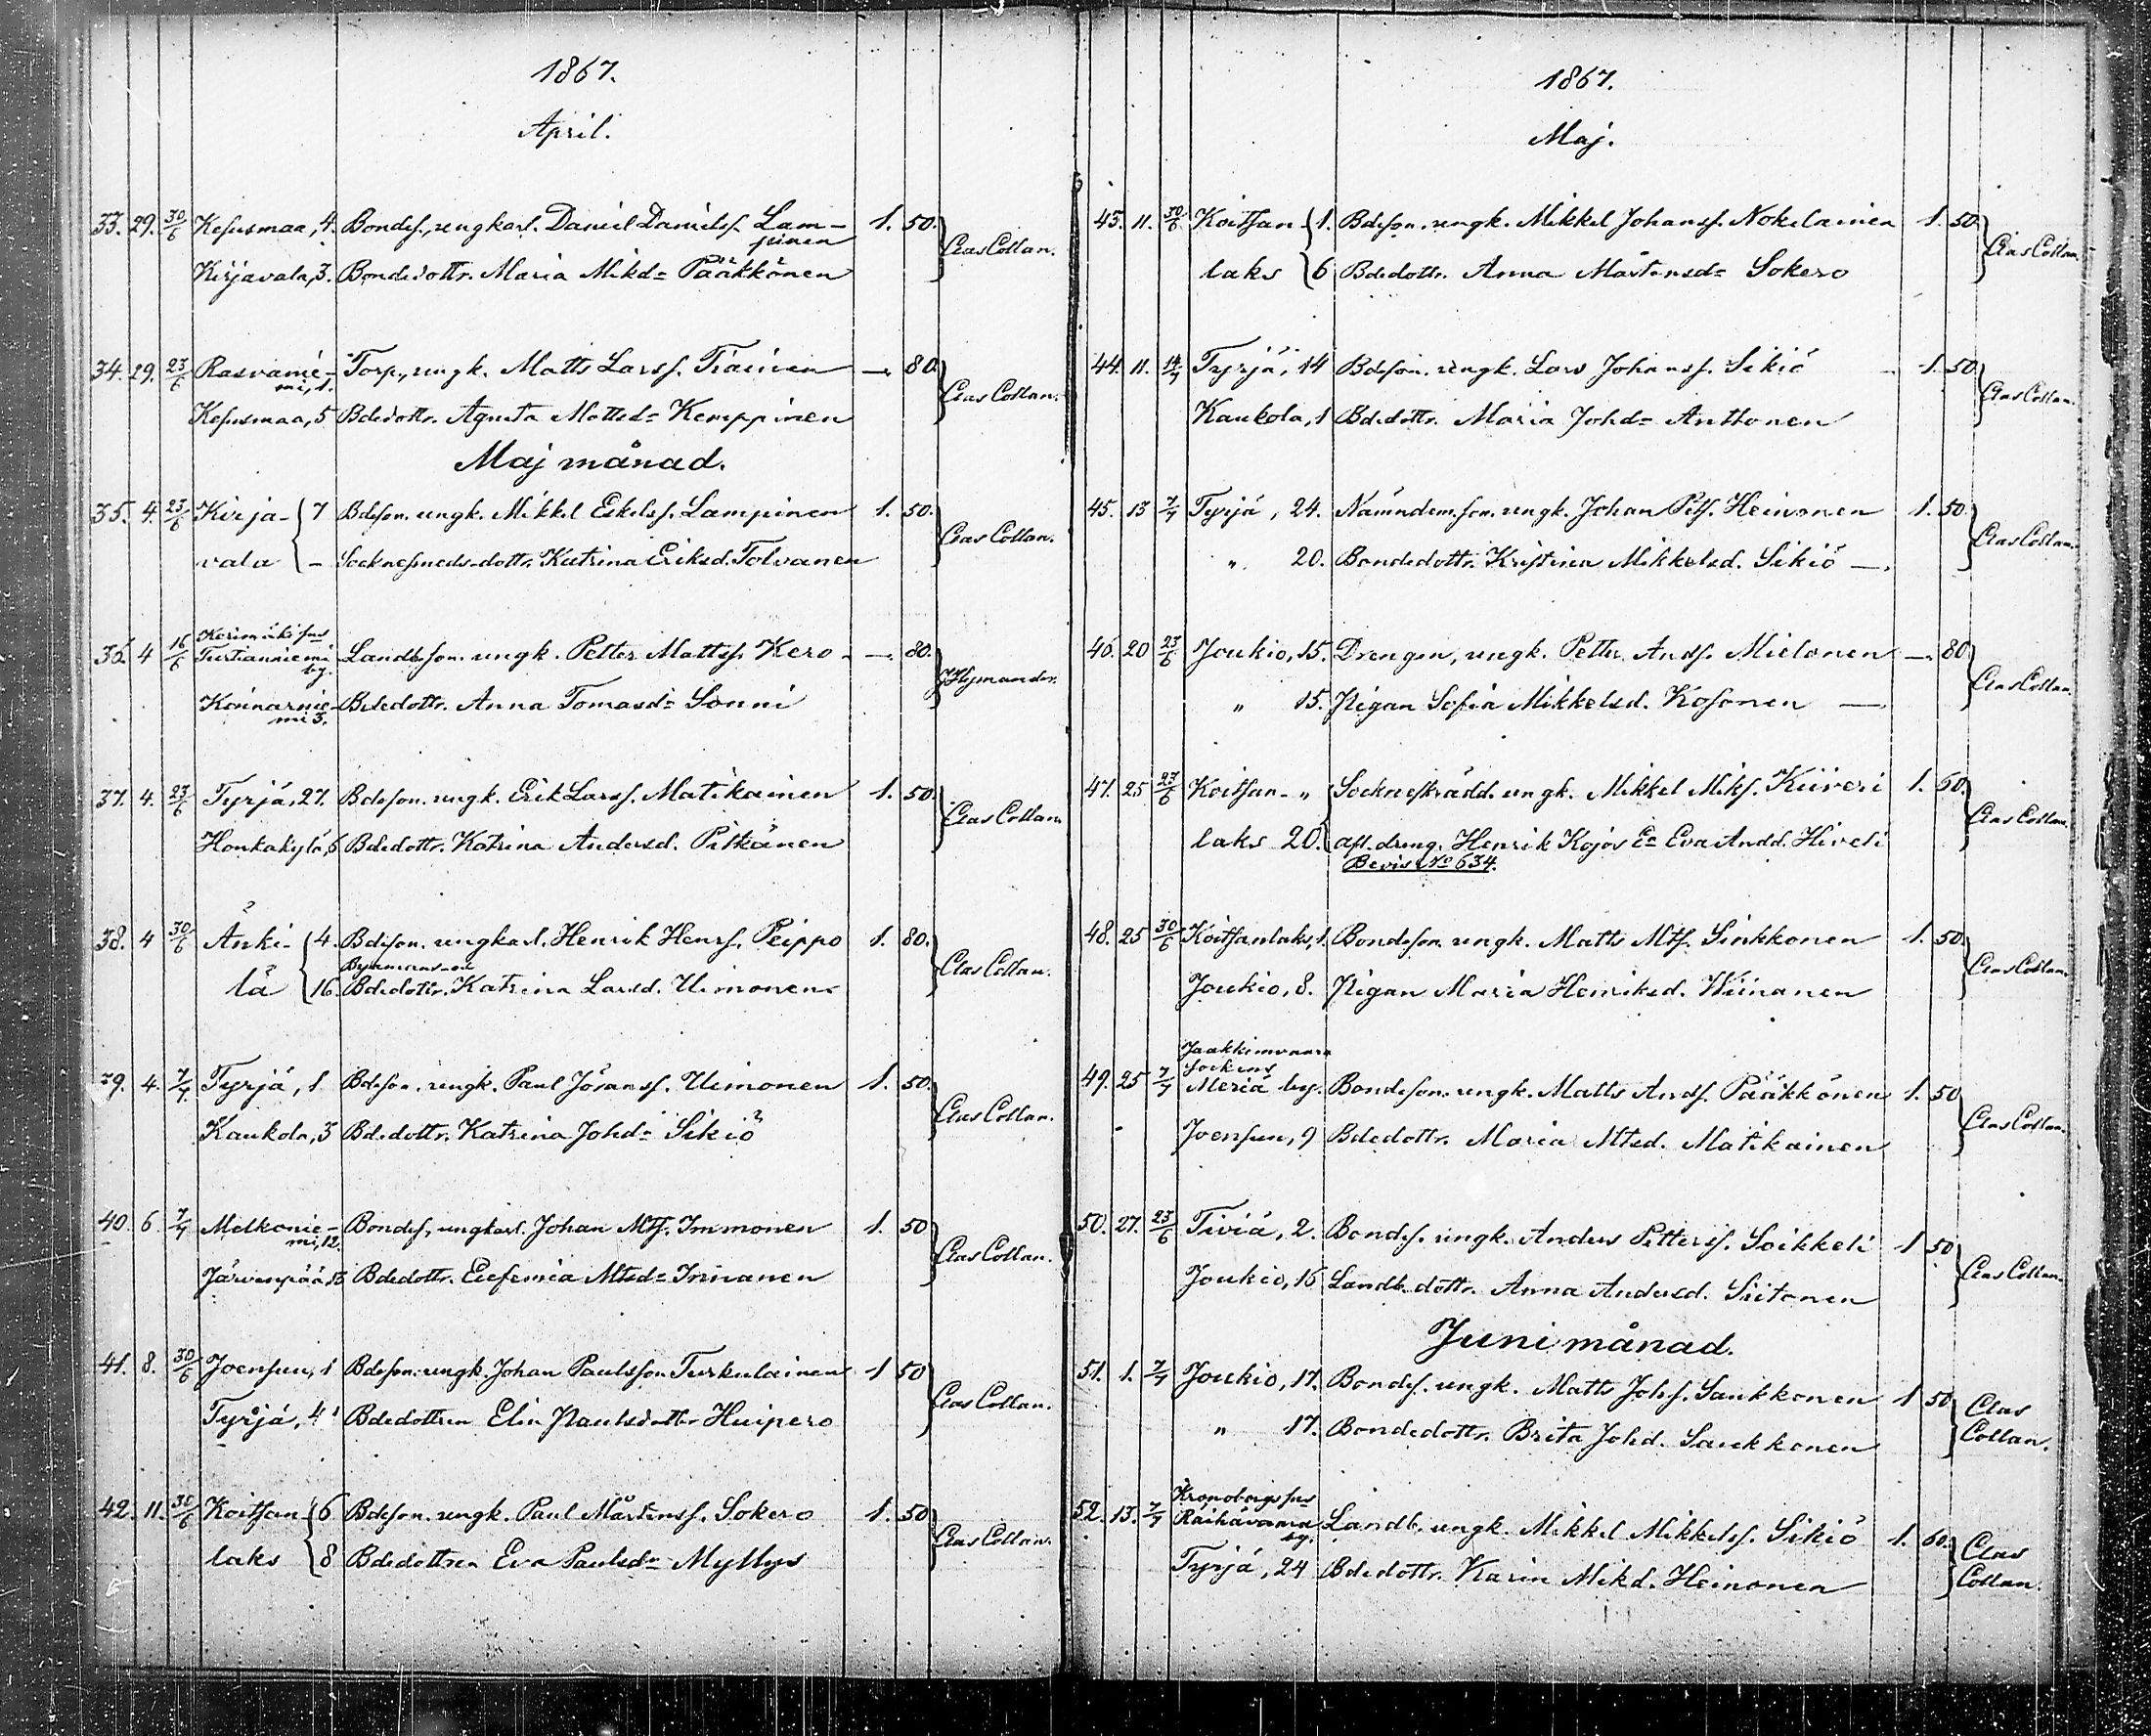 1867.
April.
33. 29. 30/6 Kesusmaa, 4. Bondes., ungkarl. Daniel Daniels. Lam- 1. 50.
pinen
Clas Collan.
Kirjavala, 3. Bondedottr. Maria Mikd= Pääkkönen
34. 29. 23/6 Rasvanie- Torp., ungk. Matts Larss. Tiainen — 80.
mi, 1.
Clas Collan.
Kesusmaa, 5 Bdedottr. Agneta Mattsd= Kemppinen
Maj månad.
35. 4. 23/6 Kirja- 7 Bdeson. ungk. Mikkel Eskelss. Lampinen 1. 50.
Clas Collan.
vala – Socknesmeds-dottr. Katrina Eriksd. Tolvanen
36. 4 16/6 Kerimäki sns
Turtianniemi Landb. son. ungk. Petter Mattss. Kero — 80.
by.
Hymander.
Koinarnie- Bdedottr. Anna Tomasd= Sonni
mi 3.
37. 4. 23/6 Tyrjä, 27. Bdeson. ungk. Erik Larss. Matikainen 1. 50.
Clas Collan
Honkakylä, 6 Bdedottr. Katrina Andersd. Pitkänen
38. 4 30/6 Änki- 4. Bdeson. ungkarl. Henrik Henrs. Peippo 1. 80.
Clas Collan.
lä 16. Bdedottr. Katrina Larsd. Uimonen
39. 4. 7/7 Tyrjä, 1 Bdeson. ungk. Paul Jöranss. Uimonen 1. 50.
Clas Collan.
Kaukola, 3 Bdedottr. Katrina Johd= Sikiö
40. 6. 7/7 Melkonie- Bondes., ungkarl. Johan Mts. Immonen 1. 50
mi, 12.
Clas Collan.
Järvenpää, 13 Bdedottr. Eufemia Mtsd= Innanen
41. 8. 30/6 Joensuu, 1 Bdeson. ungk. Johan Paulsson Turkulainen 1 50
Clas Collan.
Tyrjä, 41 Bdedottren Elin Paulsdotter Huipero
42. 11. 30/6 Koitsan- 6 Bdeson. ungk. Paul Mårtenss. Sokero 1. 50
Clas Collan.
laks 8 Bdedottren Eva Paulsd= Myllys
1867.
Maj.
43. 11. 30/6 Koitsan- 1. Bdeson. ungk. Mikkel Johanss. Nokelainen 1. 50
Clas Collan.
laks 6 Bdedottr. Anna Mårtensd= Sokero
44. 11. 14/7 Tyrjä, 14 Bdeson. ungk. Lars Johanss. Sikiö 1. 50
Clas Collan.
Kaukola, 1 Bdedottr. Maria Johd= Anttonen
45. 13 7/7 Tyrjä, 24. Nämndem. son. ungk. Johan Pets. Heinonen 1. 50.
Clas Collan.
" 20. Bondedottr. Kristina Mikkelsd. Sikiö —.
46. 20 23/6 Joukio, 15. Drengen, ungk. Petter Ands. Mielonen — 80
Clas Collan.
" 15. Pigan Sofia Mikkelsd. Kosonen —
47. 25 23/6 Koitsan- " Sockneskrädd. ungk. Mikkel Miks. Kiiveri 1. 60.
Clas Collan.
laks 20. afl. dreng. Henrik Kojos E= Eva Andd. Hirveli
Bevis No 634.
48. 25 30/6 Koitsanlaks, 1. Bondeson. ungk. Matts Mts. Sinkkonen 1. 50
Clas Collan.
Joukio, 8. Pigan Maria Henriksd. Wiinanen
Jaakkimvaara
Sockens
49. 25 7/7 Meriä by. Bondeson. ungk. Matts Ands. Pääkkönen 1. 50
Clas Collan.
Joensuu, 9 Bdedottr. Maria Mtsd. Matikainen
50. 27. 23/6 Tiviä, 2. Bondes. ungk. Anders Petterss. Soikkeli 1 50
Clas Collan.
Joukio, 16 Landb. dottr. Anna Andersd. Siitonen
Juni månad.
51. 1. 7/7 Joukio, 17. Bondes. ungk. Matts Johs. Saukkonen 1 50
Clas
Collan.
" 17. Bondedottr. Brita Johd. Saukkonen
Kronoborgs sns
52. 13. 7/7 Räihävaara Landb. ungk. Mikkel Mikkelss. Sikiö 1. 60.
by.
Clas
Collan.
Tyrjä, 24 Bdedottr. Karin Mikd. Heinonen